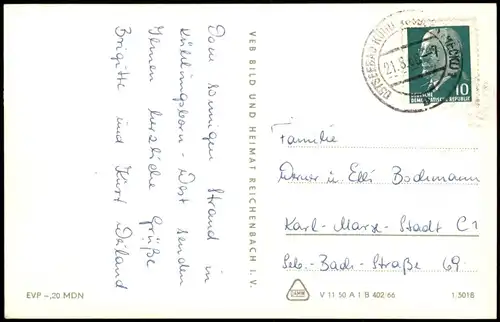 Vom sonnigen Strand in
Kühlungsborn-West senden
Ihnen herzliche Grüße
Brigitte und Kurt Weiland
VEB BILD UND HEIMAT REICHENBACH I. V.
OSTSEEBAD
21.6.
10
DEUTSCHE
DEMOKRATISCHE REPUBLIK
Familie
Werner u. Elli Bochmann
Karl-Marx-Stadt C1
Seb.-Bach-Straße 69.
EVP –,20 MDN
V 11 50 A 1 B 402/66
1.5018